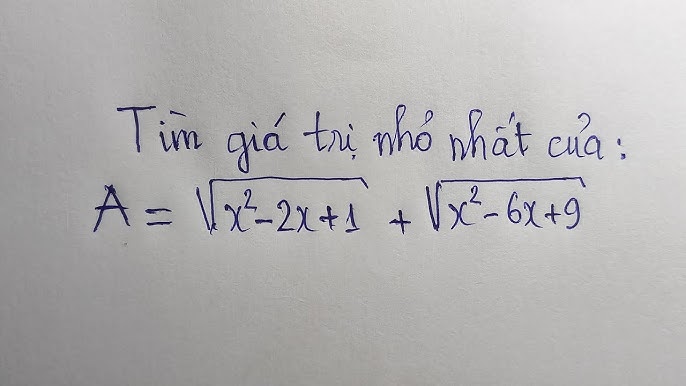 Tìm giá trị nhỏ nhất của:
A = √(x²-2x+1) + √(x²-6x+9)